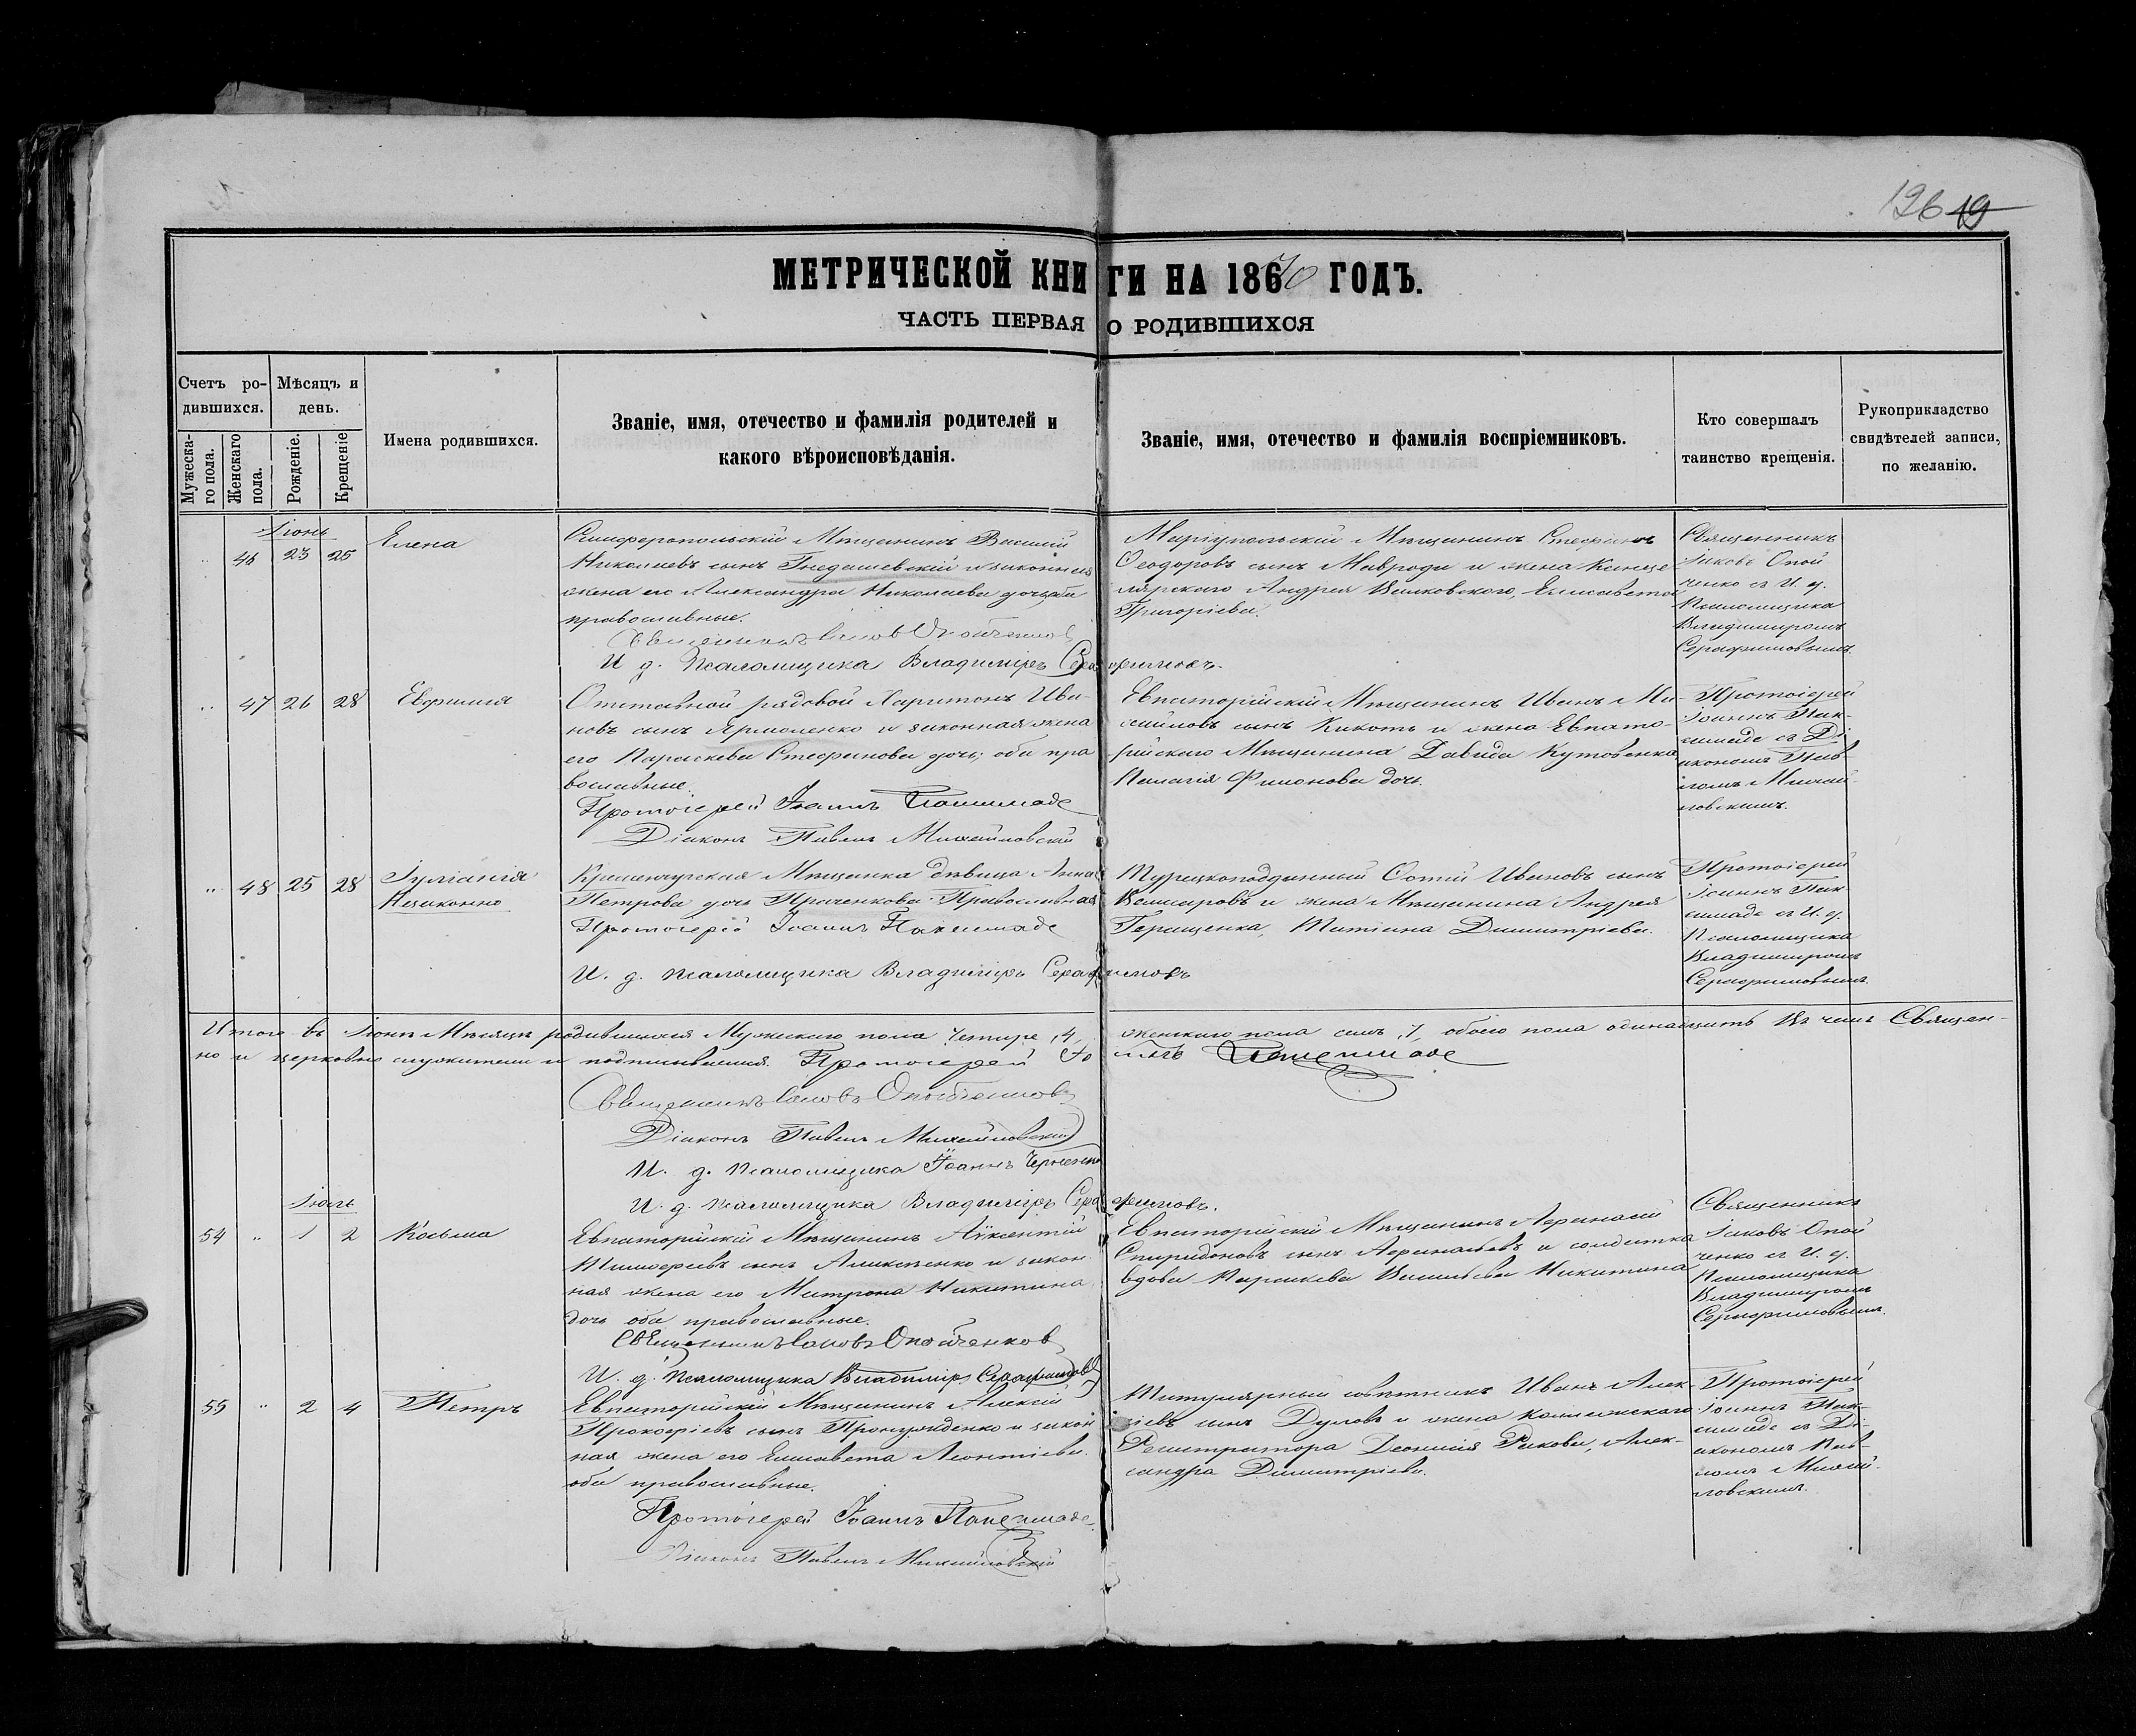 126 19
МЕТРИЧЕСКОЙ КНИГИ НА 1870 ГОДЪ.
ЧАСТЬ ПЕРВАЯ О РОДИВШИХСЯ
Счетъ ро-
дившихся.
Мужеска-
го пола.
Женскаго
пола.
Мѣсяцъ и
день.
Рожденіе.
Крещеніе
Имена родившихся.
Званіе, имя, отечество и фамилія родителей и
какого вѣроисповѣданія.
Званіе, имя, отечество и фамилія воспріемниковъ.
Кто совершалъ
таинство крещенія.
Рукоприкладство
свидѣтелей записи,
по желанію.
Іюнь
46 23 25
Елена
Симферопольскій Мѣщанинъ Василій
Николаевъ сынъ Гнедашевскій и законная
жена его Александра Николаева дочь, оба
православные.
Священникъ Іаковъ Опойченковъ
И. д. Псаломщика Владиміръ Серафимовъ.
Маріупольскій Мѣщанинъ Стефанъ
Ѳеодоровъ сынъ Мавроди и жена Канце
лярскаго Андрея Велковскаго, Елисавета
Григоріева.
Священникъ
Іаковъ Опой
ченко съ И. д.
Псаломщика
Владиміромъ
Серафимовымъ.
" 47 26 28
Евфимія
Отставной рядовой Харитонъ Ива-
новъ сынъ Ярмоленко и законная жена
его Параскева Стефанова дочь; оба пра
вославные.
Протоіерей Іоаннъ Пакшмаде
Діаконъ Павелъ Михайловскій
Евпаторійскій Мѣщанинъ Иванъ Ми-
хайловъ сынъ Кикоть и жена Евпато-
рійскаго Мѣщанина Давида Кутовенка
Пелагія Филонова дочь.
Протоіерей
Іоаннъ Пак-
шмаде съ Ді-
акономъ Пав-
ломъ Михай-
ловскимъ.
" 48 25 28
Іуліанія
Незаконно
Кременчугская Мѣщанка дѣвица Анна
Петрова дочь Проченкова. Православная
Протоіерей Іоаннъ Пакшмаде
И. д. Псаломщика Владиміръ Серафимовъ
Турецкоподданный Сотій Ивановъ сынъ
и жена Мѣщанина Андрея
Геращенка, Татіана Димитріева.
Протоіерей
Іоаннъ Пак
шмаде съ И. д.
Псаломщика
Владиміромъ
Серафимовымъ.
Итого въ Іюнѣ Мѣсяцѣ родившихся Мужескаго пола четыре, 4, женскаго пола семь, 7, обоего пола одинадцать. Въ чемъ Священ-
но и церковно служители и подписываемся. Протоіерей Іоаннъ Пакшмаде
Священникъ Іаковъ Опойченковъ
Діаконъ Павелъ Михайловскій
И. д. Псаломщика Іоаннъ
И. д. Псаломщика Владиміръ Серафимовъ.
Іюль
54 " 1 2
Косьма
Евпаторійскій Мѣщанинъ Аѵксентій
Тимоѳеевъ сынъ Аликсѣенко и закон
ная жена его Матрона Никитина
дочь оба православные.
Священникъ Іаковъ Опойченковъ
И. д. Псаломщика Владиміръ Серафимовъ
Евпаторійскій Мѣщанинъ Аѳанасій
Спиридоновъ сынъ Аѳанасьевъ и солдатка
вдова Параскева Васильева Никитина
Священникъ
Іаковъ Опой
ченко съ И. д.
Псаломщика
Владиміромъ
Серафимовымъ.
55 " 2 4
Петръ
Евпаторійскій Мѣщанинъ Алексій
Прокофіевъ сынъ и закон
ная жена его Елисавета Леонтіева.
оба православные.
Протоіерей Іоаннъ Пакшмаде
Діаконъ Павелъ Михайловскій
Титулярный совѣтникъ Иванъ Алек-
сіевъ сынъ Дуловъ и жена Коллежскаго
Регистратора Діонисія Ракова, Алек-
сандра Димитріева.
Протоіерей
Іоаннъ Пак-
шмаде съ Ді-
акономъ Пав-
ломъ Михай-
ловскимъ.